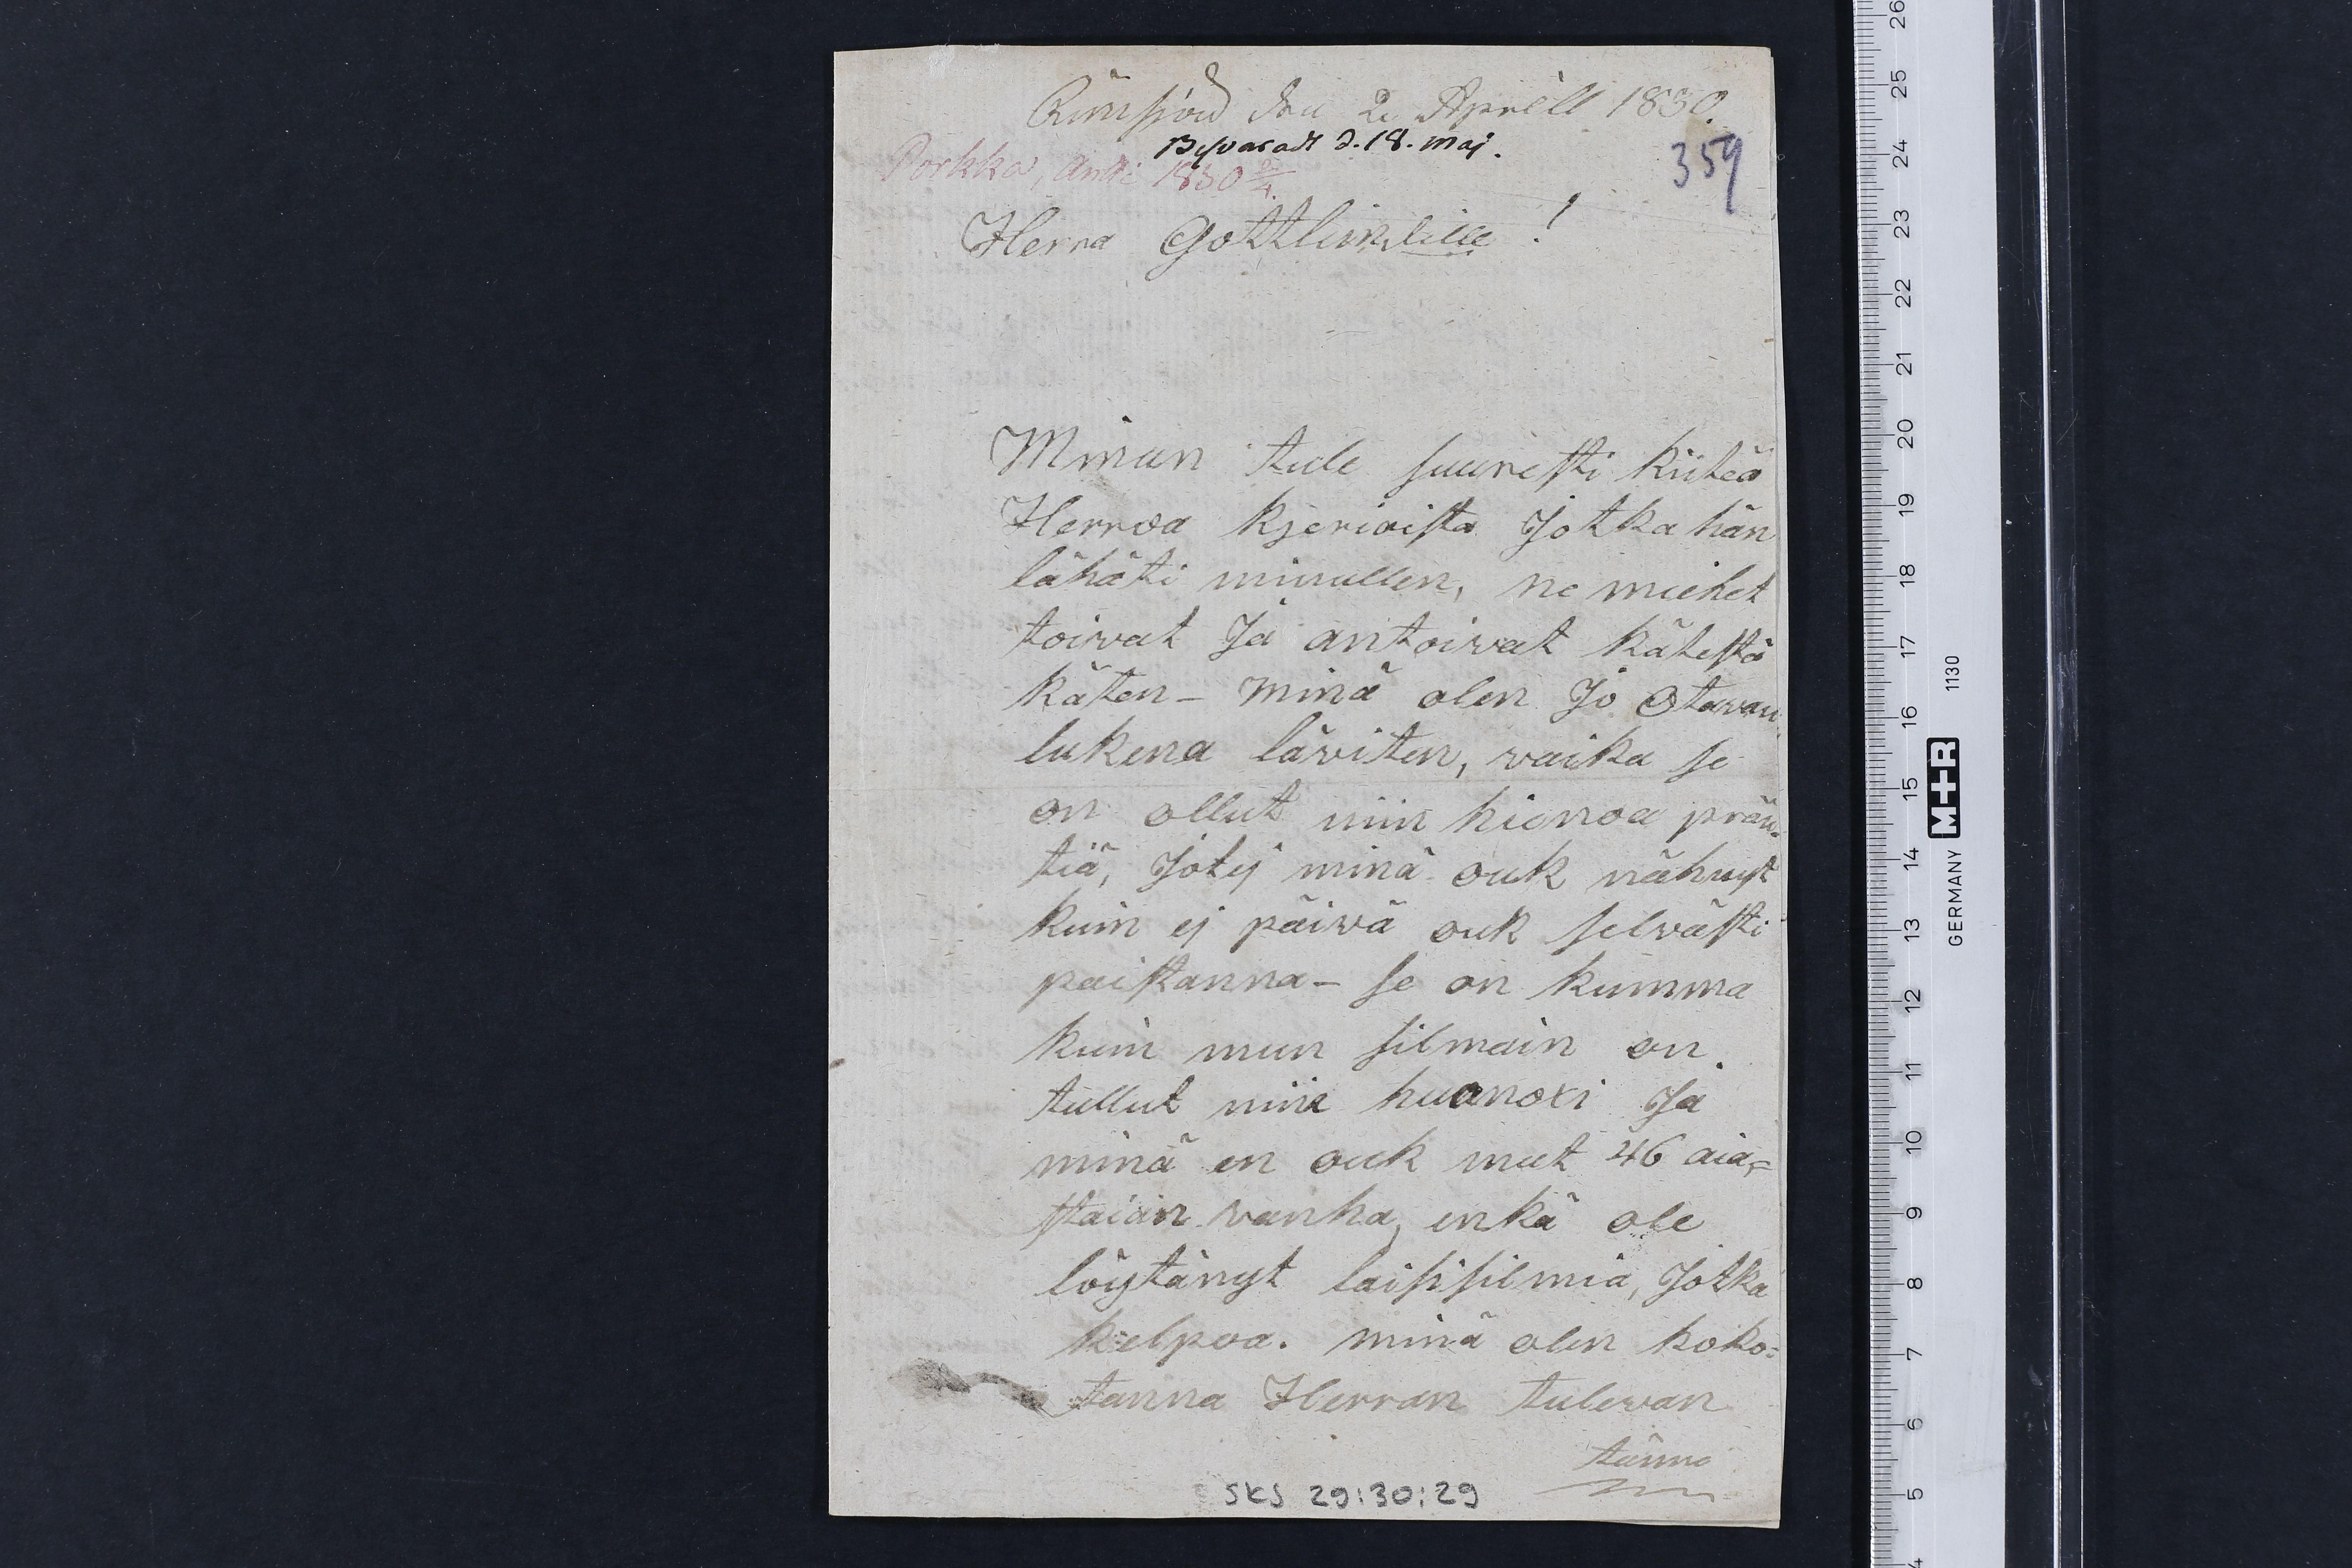 Rimsjöd den 2 Aprill 1830.
Besvaradt d. 18. Maj.
Porkka, Antti 1830 2/4.
359
Herra Gottlundille!
Minun tule suuresti kiiteä
Herroa kjerioista Jotka hän
lähäti minullen, ne miehet
toivat Ja antoivat kätestä
käten - minä olen Jo Otavan
lukena läviten, vaika se
on ollut niin hionoa prän-
tiä, Jotej minä ouk nähnyt
kuin ej päivä ouk selvästi
paistanna - se on kumma
kuin mun silmäin on
tullut niin huonoxi Ja
minä en ouk muut 46 aia=
staian vanha, enkä ole
löytänyt laisisilmiä, Jotka
kelpoa. minä olen koko=
tanna Herran tulevan
tänne
SKS 29:30:29
26
25
24
23
22
21
20
19
18
17
16
15
14
13
12
11
10
9
8
7
6
5
4
GERMANY M+R 1130